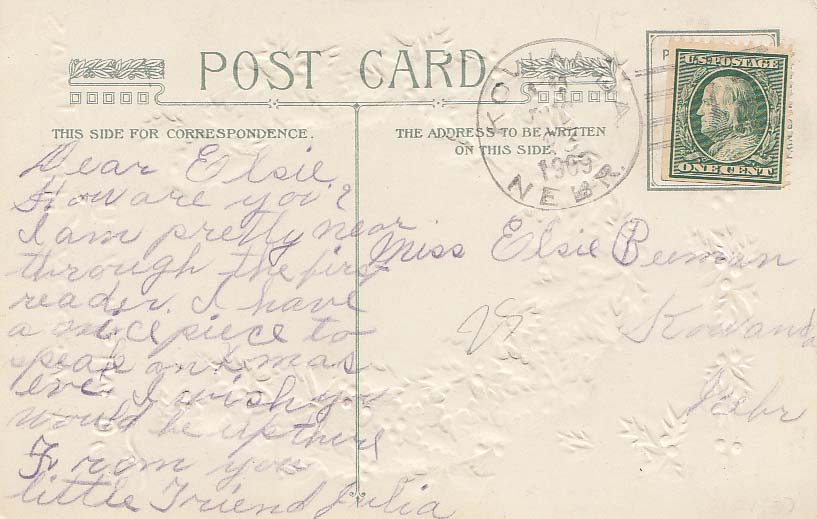 POST CARD
THIS SIDE FOR CORRESPONDENCE.
THE ADDRESS TO BE WRITTEN
ON THIS SIDE.
KOWANDA
1909
NEBR.
U.S. POSTAGE
ONE CENT
Dear Elsie.
How are you?
I am pretty near
through the first
reader. I have
a nice piece to
speak on Xmas
eve. I wish you
would be up there
From you
little Friend Julia
Miss Elsie Beeman
Kowanda
Nebr